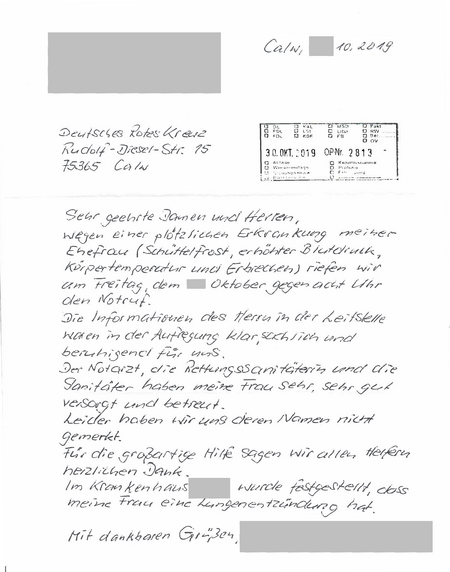 Calw, 10.2019
Deutsches Rotes Kreuz
Rudolf-Diesel-Str. 15
75365 Calw
30. OKT. 2019 OPNr. 2813
Sehr geehrte Damen und Herren,
wegen einer plötzlichen Erkrankung meiner
Ehefrau (Schüttelfrost, erhöhter Blutdruck,
Körpertemperatur und Erbrechen) riefen wir
am Freitag, dem Oktober gegen acht Uhr
den Notruf.
Die Informationen des Herrn in der Leitstelle
waren in der Aufregung klar, sachlich und
beruhigend für uns.
Der Notarzt, die Rettungssanitäterin und die
Sanitäter haben meine Frau sehr, sehr gut
versorgt und betreut.
Leider haben wir uns deren Namen nicht
gemerkt.
Für die großartige Hilfe sagen wir allen Helfern
herzlichen Dank.
Im Krankenhaus wurde festgestellt, dass
meine Frau eine Lungenentzündung hat.
Mit dankbaren Grüßen,